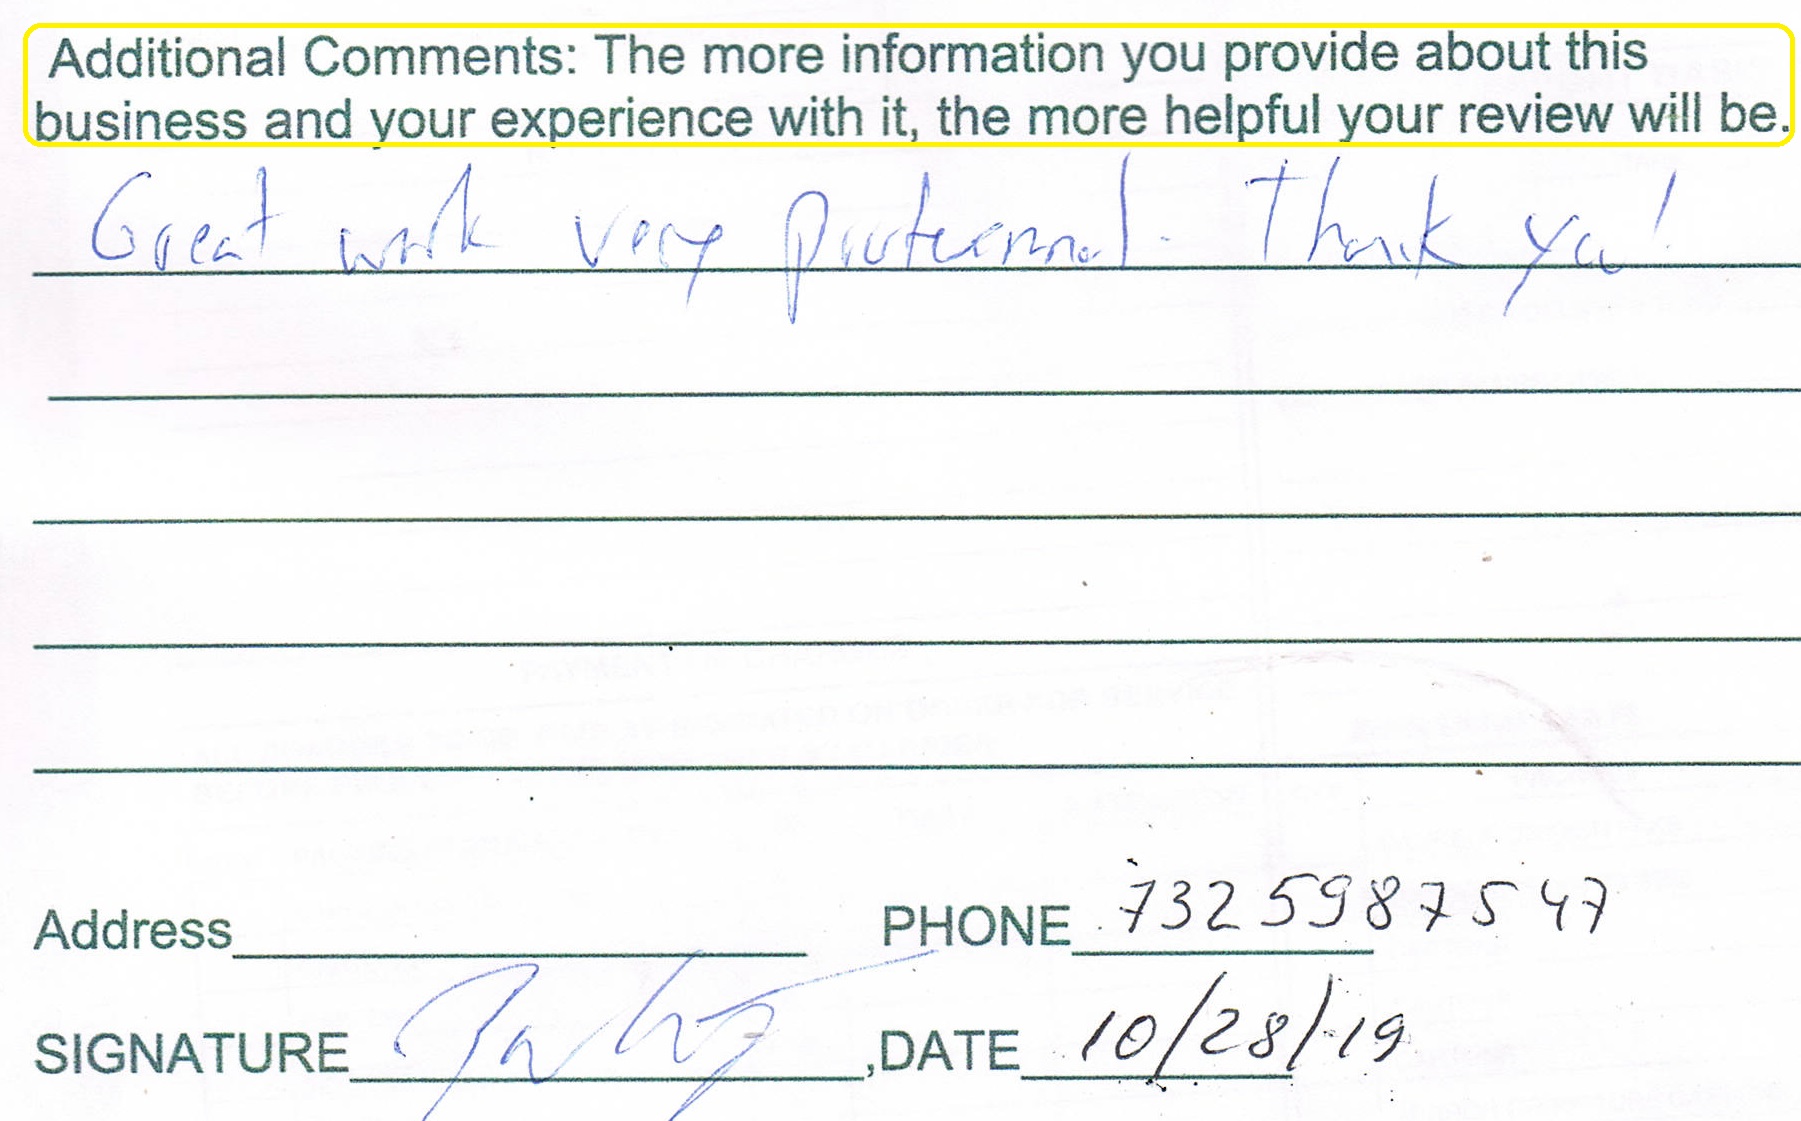 Additional Comments: The more information you provide about this
business and your experience with it, the more helpful your review will be.
Great work very professional. Thank you!
Address PHONE 7325987547
SIGNATURE ,DATE 10/28/19